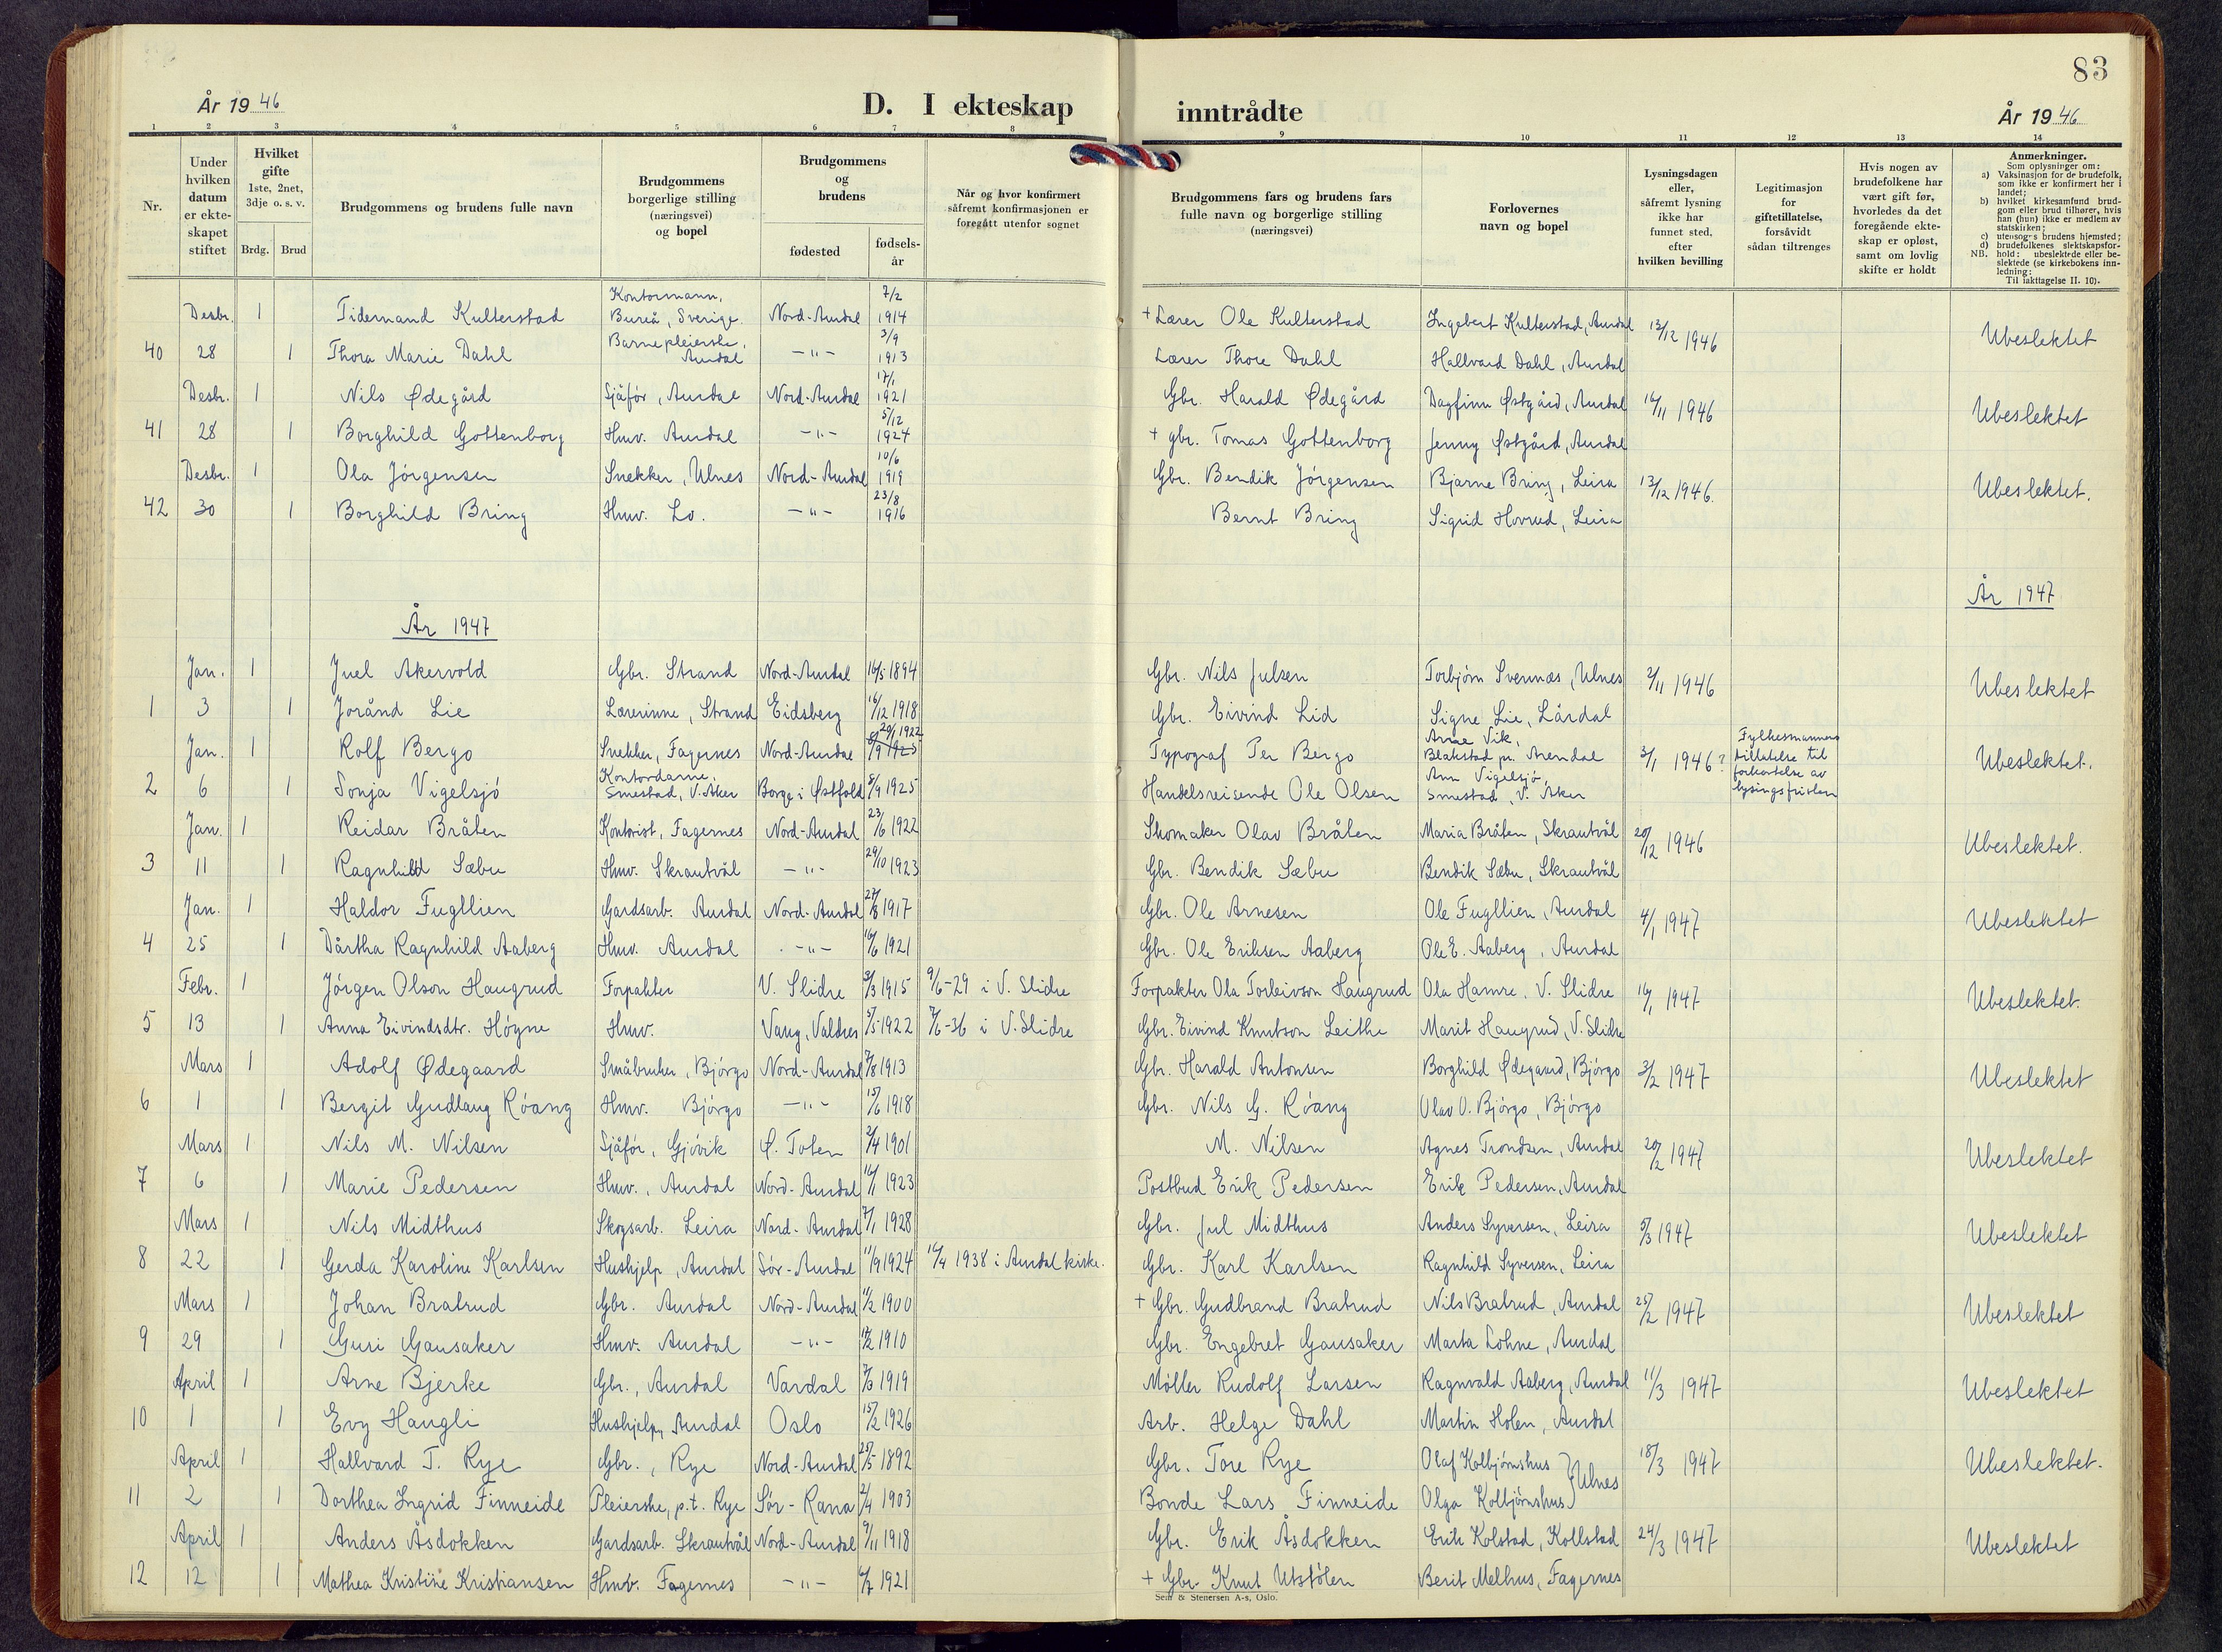 83
År 1946
D. I ekteskap
inntrådte
År 1946
1 2 3 4 5 6 7 8 9 10 11 12 13 14
Nr.
Under hvilken datum er ekte-skapet stiftet
Hvilket gifte 1ste, 2net, 3dje o. s. v.
Brdg. Brud
Brudgommens og brudens fulle navn
Brudgommens borgerlige stilling (næringsvei) og bopel
Brudgommens og brudens
fødested
fødsels-år
Når og hvor konfirmert såfremt konfirmasjonen er foregått utenfor sognet
Brudgommens fars og brudens fars fulle navn og borgerlige stilling (næringsvei)
Forlovernes navn og bopel
Lysningsdagen eller, såfremt lysning ikke har funnet sted, efter hvilken bevilling
Legitimasjon for giftetillatelse, forsåvidt sådan tiltrenges
Hvis nogen av brudefolkene har vært gift før, hvorledes da det foregående ekte-skap er opløst, samt om lovlig skifte er holdt
Anmerkninger.
Som oplysninger om:
a) Vaksinasjon for de brudefolk, som ikke er konfirmert her i landet;
b) hvilket kirkesamfund brud-gom eller brud tilhører, hvis han (hun) ikke er medlem av statskirken;
c) utensogns brudens hjemsted;
d) brudefolkenes slektskapsfor-hold: ubeslektede eller be-slektede (se kirkebokens inn-ledning:
NB.
Til iakttagelse II. 10).
Desbr. 1 Tidemand Kulterstad Kontormann, Bureå, Sverige. Nord-Aurdal 7/2 1914 + Lærer Ole Kulterstad Ingebert Kulterstad, Aurdal 13/12 1946 Ubeslektet
40 28 1 Thora Marie Dahl Barnepleierske, Aurdal -"- 3/9 1913 Lærer Thore Dahl Hallvard Dahl, Aurdal
Desbr. 1 Nils Ødegård Sjåfør, Aurdal Nord-Aurdal 17/1 1921 Gbr. Harald Ødegård Dagfinn Østgård, Aurdal 16/11 1946 Ubeslektet
41 28 1 Borghild Gottenborg Hmv. Aurdal -"- 5/12 1924 + gbr. Tomas Gottenborg Jenny Østgård, Aurdal
Desbr. 1 Ola Jörgensen Snekker, Ulnes Nord-Aurdal 10/6 1919 Gbr. Bendik Jörgensen Bjarne Bring, Leira 13/12 1946. Ubeslektet.
42 30 1 Borghild Bring Hmv. Lo. -"- 23/8 1916 Bernt Bring Sigrid Hovrud, Leira
År 1947
År 1947
Jan. 1 Juel Akervold Gbr. Strand Nord-Aurdal 16/5 1894 Gbr. Nils Julsen Torbjörn Svennæs, Ulnes 2/11 1946 Ubeslektet
1 3 1 Jorånd Lie Lærerinne, Strand Eidsberg 16/12 1918 Gbr. Eivind Lid Signe Lie, Lårdal
Jan. 1 Rolf Bergo Snekker, Fagernes Nord-Aurdal 29/1 1922 Typograf Per Bergo Arne Vik, Blakstad pr. Arendal 3/1 1946? Fylkesmannens tillatelse til forkortelse av lysingsfristen Ubeslektet.
2 6 1 Sonja Vigelsjö Kontordame, Smestad, V. Aker Borge i Østfold 8/9 1925 Handelsreisende Ole Olsen Ann Vigelsjö, Smestad, V. Aker
Jan. 1 Reidar Bråten Kontorist, Fagernes Nord-Aurdal 23/6 1922 Skomaker Olav Bråten Maria Bråten, Skrautvål 20/12 1946 Ubeslektet.
3 11 1 Ragnhild Sæbu Hmv. Skrautvål -"- 29/10 1923 Gbr. Bendik Sæbu Bendik Sæbu, Skrautvål
Jan. 1 Haldor Fugllien Gardsarb. Aurdal Nord-Aurdal 27/8 1917 Gbr. Ole Arnesen Ole Fugllien, Aurdal 4/1 1947 Ubeslektet
4 25 1 Dårtha Ragnhild Aaberg Hmv. Aurdal -"- 16/6 1921 Gbr. Ole Eriksen Aaberg Ole E. Aaberg, Aurdal
Febr. 1 Jörgen Olson Haugrud Forpakter V. Slidre 3/3 1915 9/6-29 i V. Slidre Forpakter Ola Torleivson Haugrud Ola Hamre, V. Slidre 16/1 1947 Ubeslektet.
5 13 1 Anna Eivindsdtr. Högne Hmv. Vang, Valdres 5/5 1922 7/6-36 i V. Slidre Gbr. Eivind Knutson Leithe Marit Haugrud, V. Slidre
Mars 1 Adolf Ødegaard Småbruker, Björgo Nord-Aurdal 7/8 1913 Gbr. Harald Antonsen Borghild Ødegaard, Björgo 3/2 1947 Ubeslektet
6 1 1 Bergit Gudlaug Röang Hmv. Björgo -"- 15/6 1918 Gbr. Nils G. Röang Olav O. Björgo, Björgo
Mars 1 Nils M. Nilsen Sjåför, Gjövik Ø. Toten 2/4 1901 M. Nilsen Agnes Trondsen, Aurdal 20/2 1947 Ubeslektet
7 6 1 Marie Pedersen Hmv., Aurdal Nord-Aurdal 16/1 1923 Postbud Erik Pedersen Erik Pedersen, Aurdal
Mars 1 Nils Midthus Skogsarb. Leira Nord-Aurdal 7/1 1928 Gbr. Jul Midthus Anders Syversen, Leira 5/3 1947 Ubeslektet
8 22 1 Gerda Karoline Karlsen Hushjelp, Aurdal Sör-Aurdal 11/9 1924 16/4 1938 i Aurdal kirke. Gbr. Karl Karlsen Ragnhild Syversen, Leira
Mars 1 Johan Bratrud Gbr. Aurdal Nord-Aurdal 11/2 1900 + Gbr. Gudbrand Bratrud Nils Bratrud, Aurdal 25/2 1947 Ubeslektet
9 29 1 Guri Gausaker Hmv. Aurdal -"- 12/2 1910 Gbr. Engebret Gausaker Marta Lohne, Aurdal
April 1 Arne Bjerke Gbr., Aurdal Vardal 7/6 1919 Möller Rudolf Larsen Ragnvald Aaberg, Aurdal 11/3 1947 Ubeslektet
10 1 1 Evy Haugli Hushjelp, Aurdal Oslo 15/2 1926 Arb. Helge Dahl Martin Holen, Aurdal
April 1 Hallvard T. Rye Gbr., Rye Nord-Aurdal 25/5 1892 Gbr. Tore Rye Olaf Kolbjörnshus } Ulnes 18/3 1947 Ubeslektet.
11 2 1 Dorthea Ingrid Finneide Pleierske, p.t. Rye Sör-Rana 2/4 1903 Bonde Lars Finneide Olga Kolbjörnshus
April 1 Anders Åsdokken Gardsarb. Skrautvål Nord-Aurdal 9/11 1918 Gbr. Erik Åsdokken Erik Kolstad, Kollstad 24/3 1947 Ubeslektet
12 12 1 Mathea Kristine Kristiansen Hmv. Fagernes -"- 6/7 1921 + Gbr. Knut Utstölen Berit Melhus, Fagernes
Sem & Stenersen A-s, Oslo.